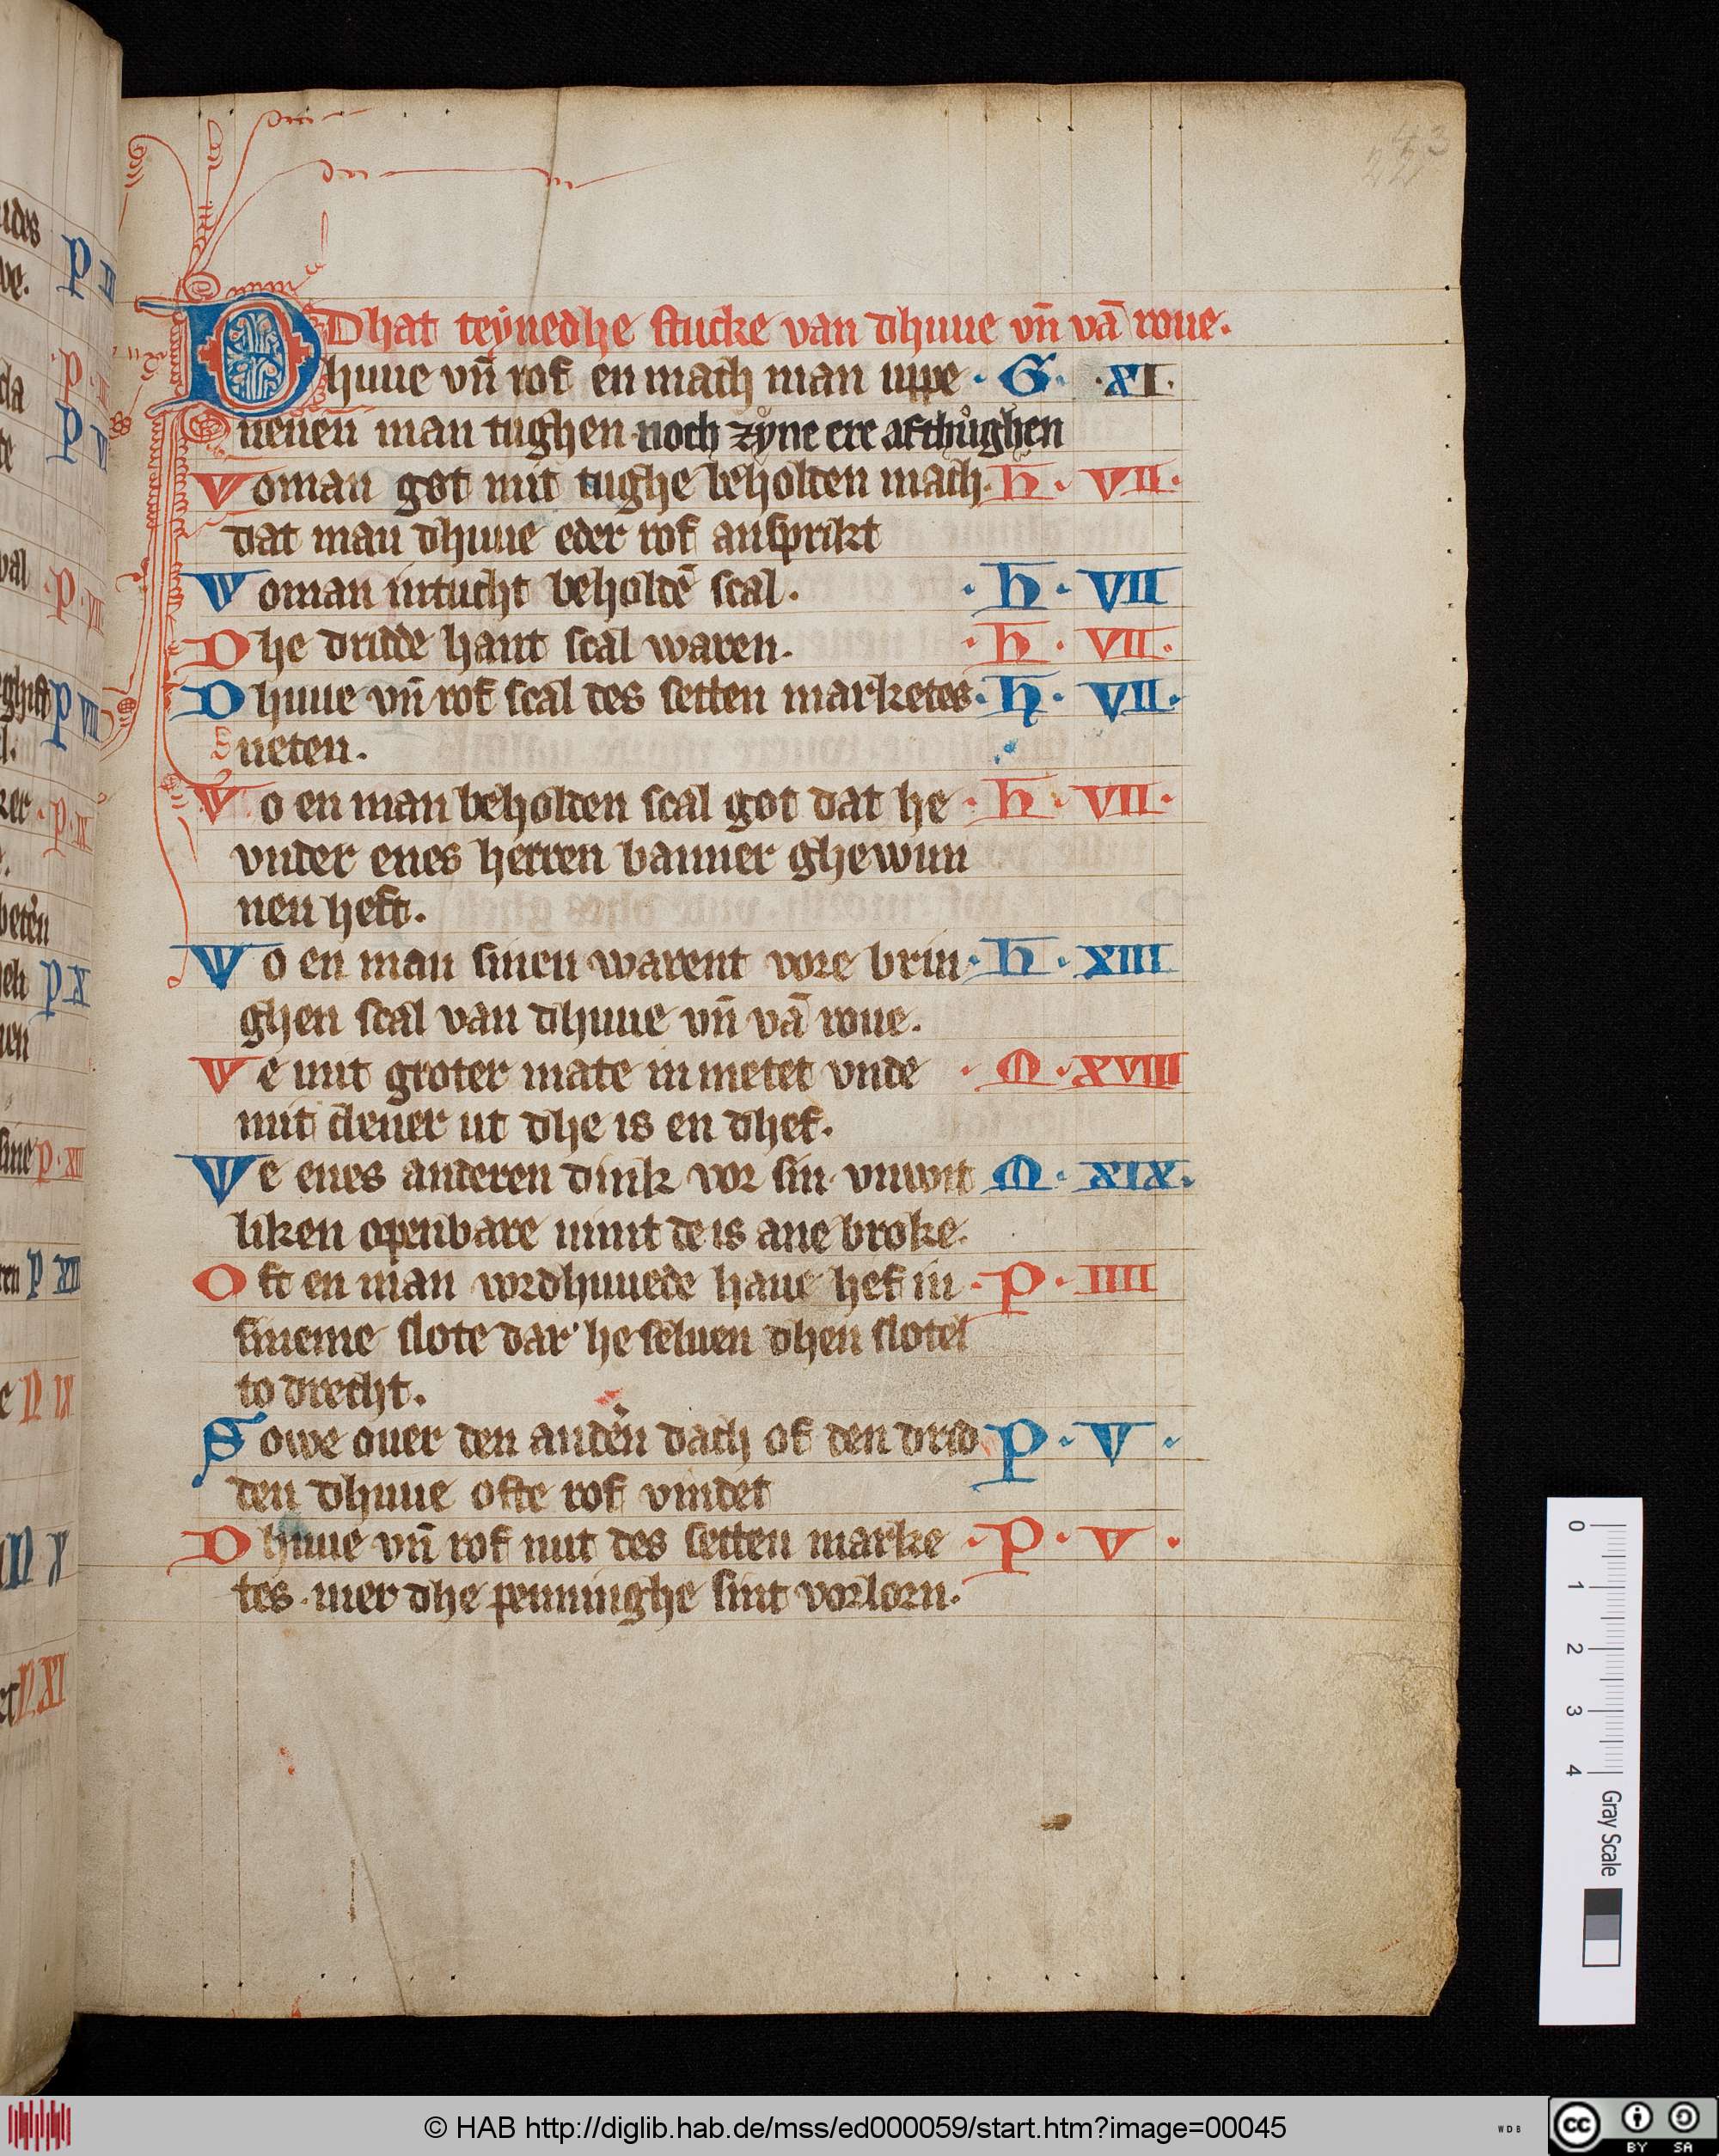 43
22
Dhat teynedhe stucke van dhuue vn̄ vā roue.
Dhuue vn̄ rof en mach man uppe · G · XI ·
nenen man tughen noch zẙne ere afthůghen
Woman got mit tughe beholden mach · h · VII ·
dat man dhuue eder rof ansprikt
Woman intucht beholdē scal. · h · VII
Dhe dridde hant scal waren. · h · VII ·
Dhuue vn̄ rof scal des setten marketes · h · VII ·
neten.
Wo en man beholden scal got dat he · h · VII ·
vnder enes herren banner ghewun
nen heft.
Wo en man sinen warent vore brin · h · XIII
ghen scal van dhuue vn̄ vā roue.
We mit groter mate in metet vnde · M · XVIII
mit clener ut dhe is en dhef.
We enes anderen dink vor sin vnwit M · XIX ·
liken openbare nimt de is ane broke.
Oft en man vordhuuede haue hef in · P · IIII
sineme slote dar he seluen dhen slotel
to drecht.
Sowe ouer den anden dach of den drid P · V ·
den dhuue ofte rof vindet
Dhuue vn̄ rof nut des setten marke · P · V ·
tes · mer dhe penninghe sint vorlorn.
0 1 2 3 4 Gray Scale
© HAB http://diglib.hab.de/mss/ed000059/start.htm?image=00045
WDB
cc BY SA